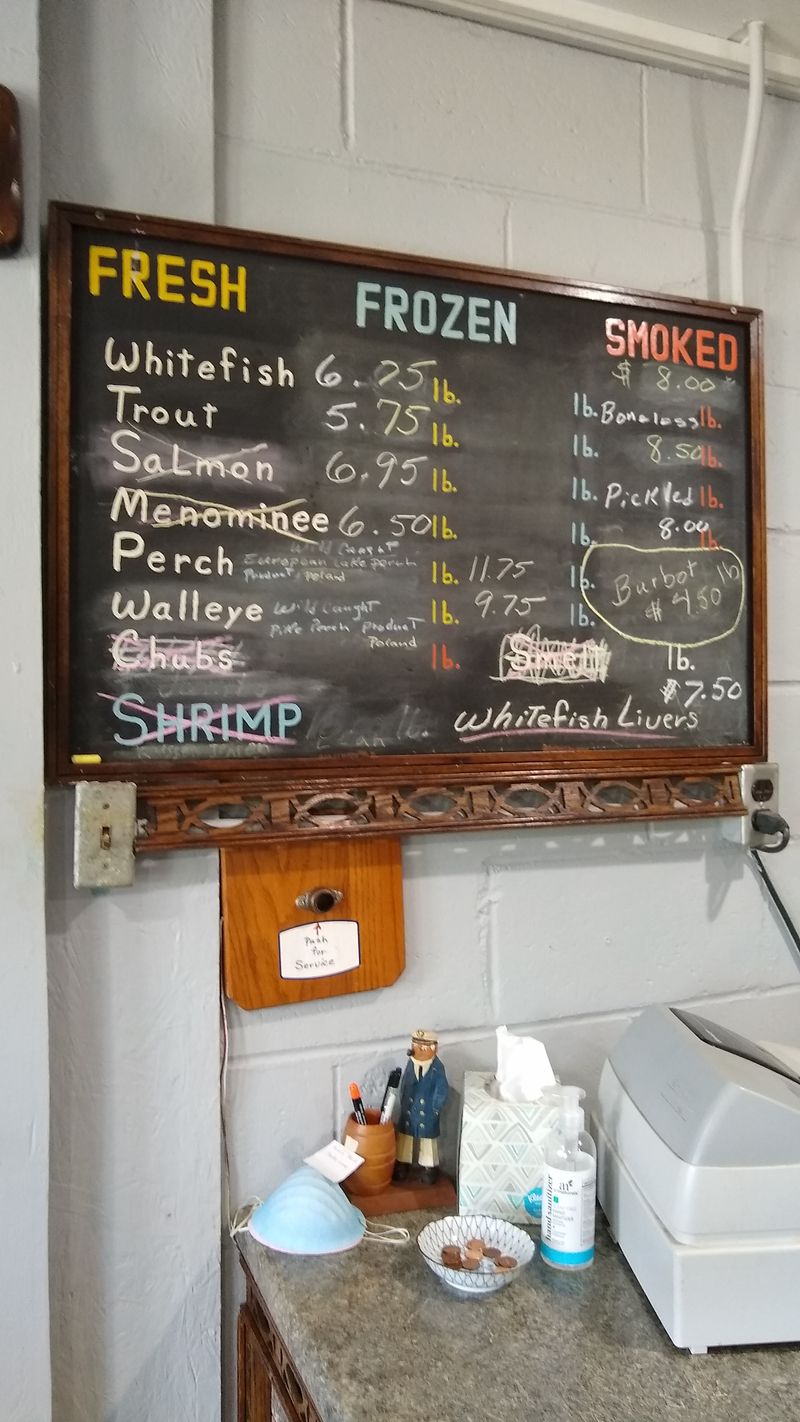 FRESH FROZEN SMOKED
Whitefish 6.25 lb. $ 8.00
Trout 5.75 lb. lb. Boneless lb.
Salmon 6.95 lb. lb. 8.50 lb.
Menominee 6.50 lb. lb. Pickled lb.
8.00
Wild Caught lb. lb.
Perch European Lake perch lb. 11.75 lb. Burbot lb
Product / Poland $ 4.50
Walleye Wild Caught lb. 9.75 lb.
Pike Perch Product
Poland
Chubs lb. Smelt lb.
$7.50
SHRIMP Whitefish Livers
Push
for
Service
hand sanitizer